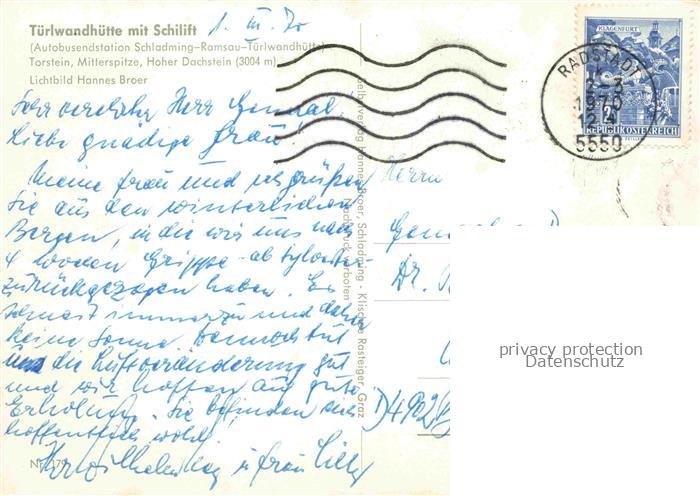 Türlwandhütte mit Schilift
1. III. 70
(Autobusendstation Schladming-Ramsau-Türlwandhütte)
Torstein, Mitterspitze, Hoher Dachstein (3004 m)
Lichtbild Hannes Broer
Sehr verehrter Herr General!
Liebe gnädige Frau!
Meine Frau und ich grüßen
Sie aus den winterlichen
Bergen, in die wir uns nach
4 Wochen Grippe - ab Sylvester -
zurückgezogen haben. Es
schneit immerzu und daher
keine Sonne. Dennoch tut
uns die Luftveränderung gut
und wir hoffen auf gute
Erholung. Sie befinden sich
hoffentlich wohl!
Ihr u Frau
Nr. 179
Selbstverlag Hannes Broer, Schladming - Klischee Rasteiger, Graz
Nachdruck verboten
KLAGENFURT
2
REPUBLIK ÖSTERREICH
RADSTADT
2-3
1970
12
5550
Herrn
Dr.
D 4902
privacy protection
Datenschutz